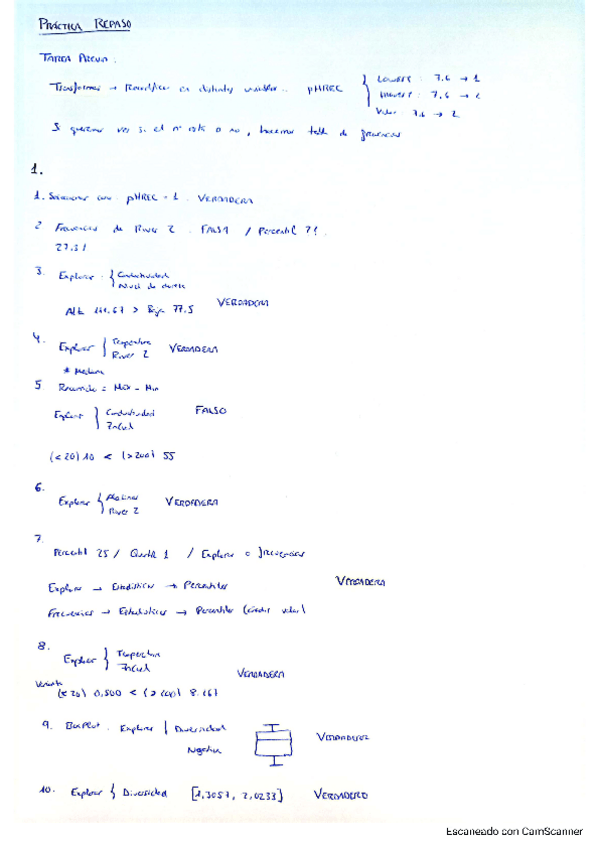 PRÁCTICA REPASO
TAREA PREVIA:
Transformar → Recodificar en distintas variables... pHREC { LOWEST: 7,6 → 1
HIGHEST: 7,6 → 2
Valor: 7,6 → 2
Si queremos ver si el nº está o no, hacemos tabla de frecuencias
1.
1. Seleccionar casos: pHREC = 1. VERDADERA
2 Frecuencias de River 2. FALSA / Percentil 71.
27.31
3. Explorar: { Conductividad
Nivel de
Alt 77.5 VERDADERA
4. Explorar { Temperatura
River 2 VERDADERA
* Mediana
5 Recorrido = Máx - Min
Explorar { Conductividad FALSO
(<20) 10 < (>200) 55
6.
Explorar { River 2 VERDADERA
7.
Percentil 25 / Quartil 1 / Explorar o frecuencias
Explorar → Estadísticos → Percentiles VERDADERA
Frecuencias → Estadísticos → Percentiles (añadir valor)
8.
Explorar { Temperatura
VERDADERA
Varianza
(<20) 0,500 < 8.167
9. BoxPlot. Explorar { Diversidad
VERDADERO
10. Explorar { Diversidad [1,3057, 2,0233] VERDADERO
Escaneado con CamScanner